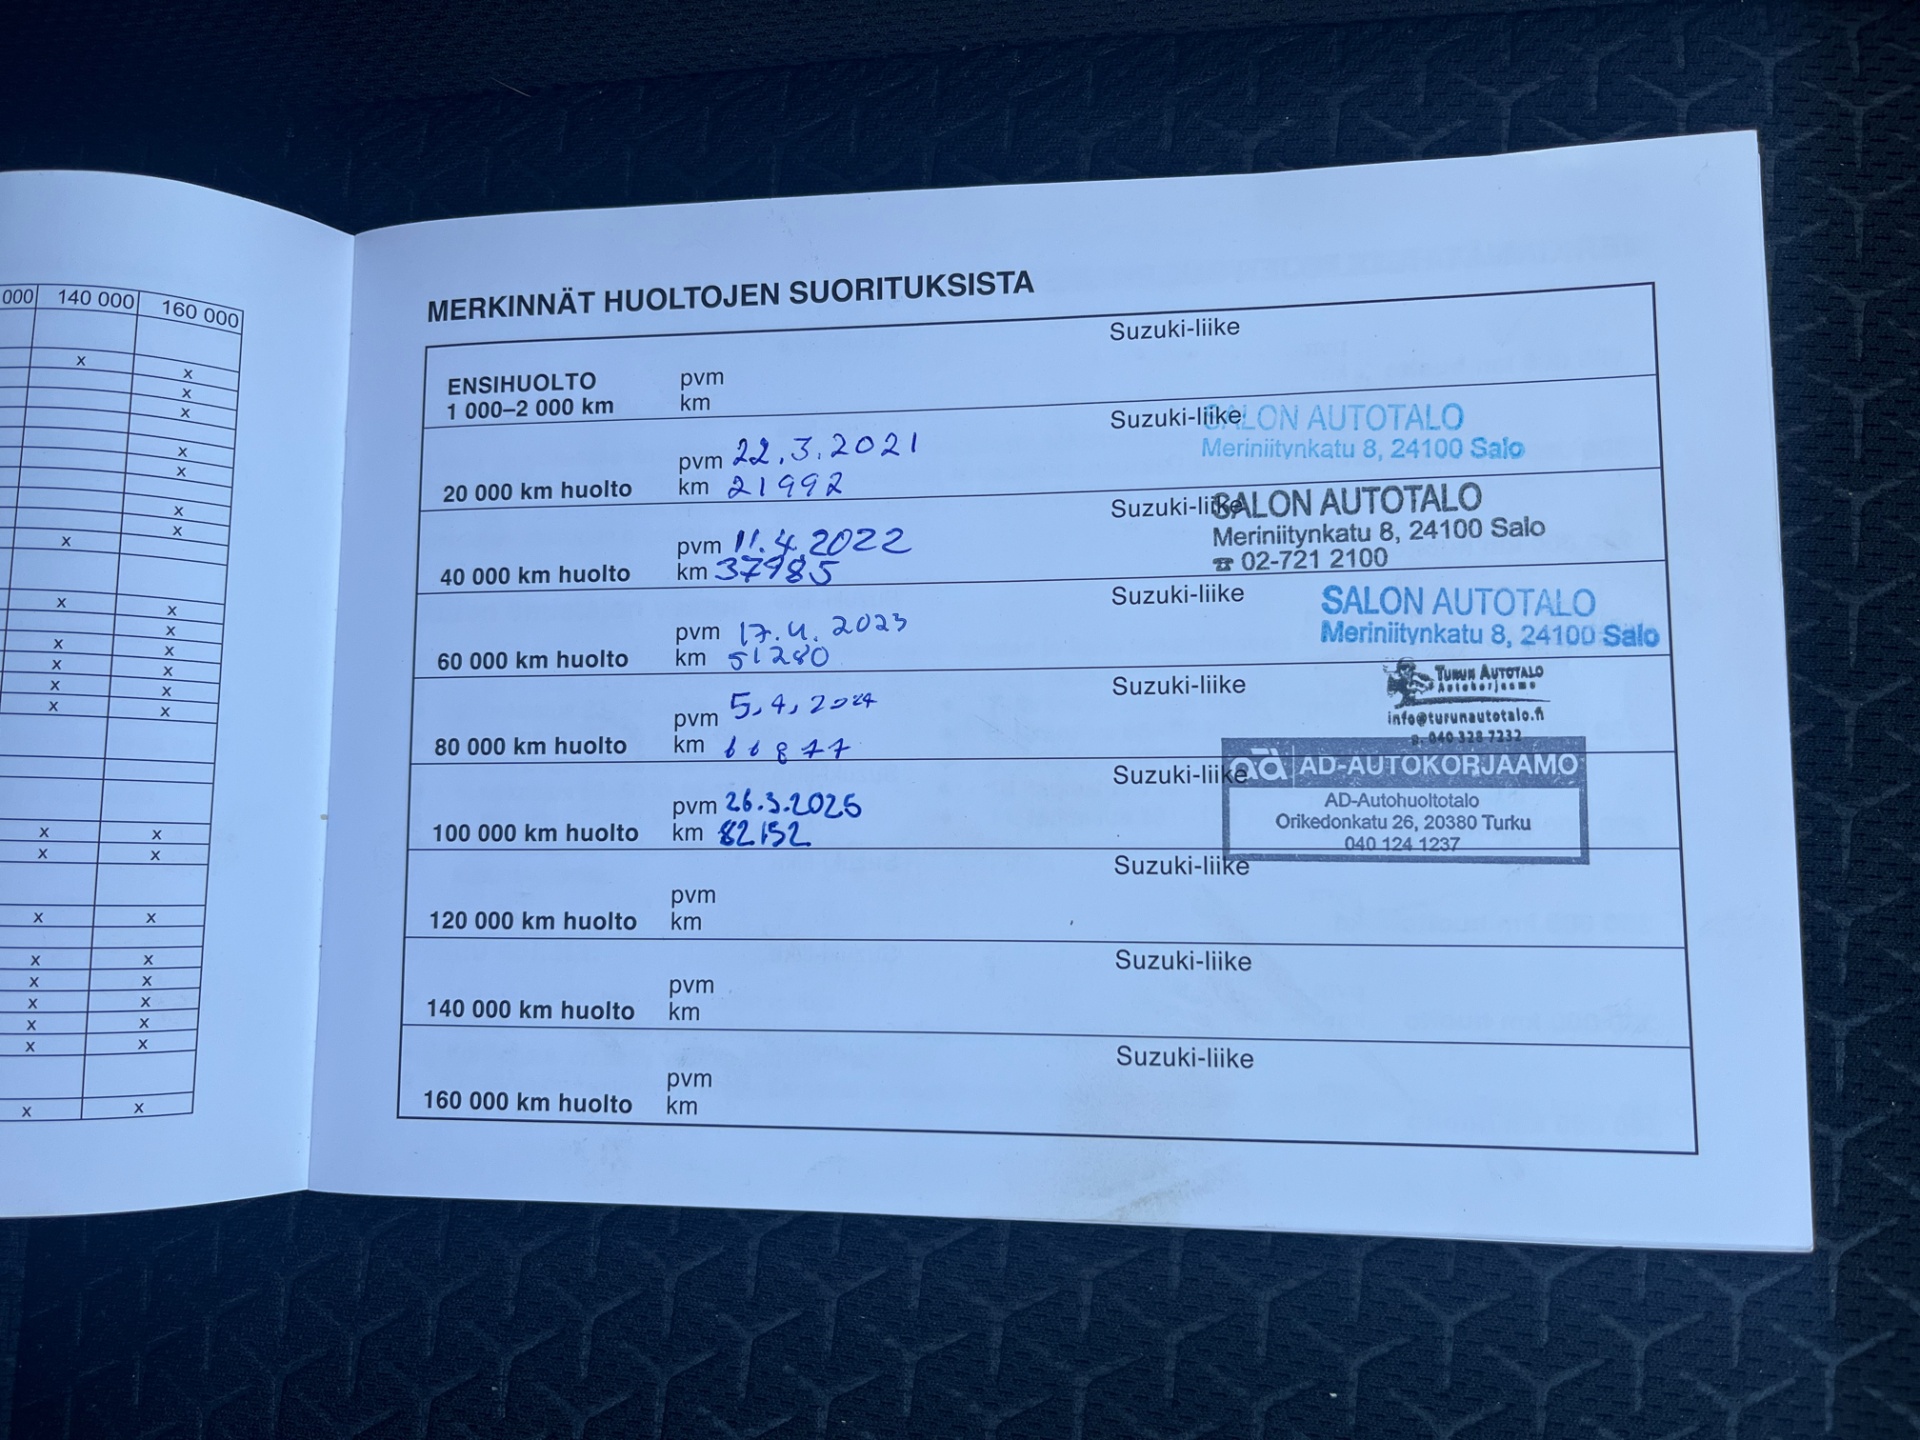 000 140 000 160 000
x
x
x
x
x
x
x
x
x
x
x
x
x
x
x
x
x
x
x
x
x
x
x
x
x
x
x
x
x
x
x
x
x
x
x
x
x
x
x
MERKINNÄT HUOLTOJEN SUORITUKSISTA
Suzuki-liike
ENSIHUOLTO pvm
1 000–2 000 km km
Suzuki-liike SALON AUTOTALO
Meriniitynkatu 8, 24100 Salo
pvm 22.3.2021
20 000 km huolto km 21992
Suzuki-liike SALON AUTOTALO
Meriniitynkatu 8, 24100 Salo
☎ 02-721 2100
pvm 11.4.2022
40 000 km huolto km 37985
Suzuki-liike SALON AUTOTALO
Meriniitynkatu 8, 24100 Salo
pvm 17.4.2023
60 000 km huolto km 51280
Suzuki-liike TURUN AUTOTALO
Autokorjaamo
info@turunautotalo.fi
p. 040 328 7232
pvm 5.4.2024
80 000 km huolto km 66877
Suzuki-liike ad AD-AUTOKORJAAMO
AD-Autohuoltotalo
Orikedonkatu 26, 20380 Turku
040 124 1237
pvm 26.3.2025
100 000 km huolto km 82152
Suzuki-liike
pvm
120 000 km huolto km
Suzuki-liike
pvm
140 000 km huolto km
Suzuki-liike
pvm
160 000 km huolto km